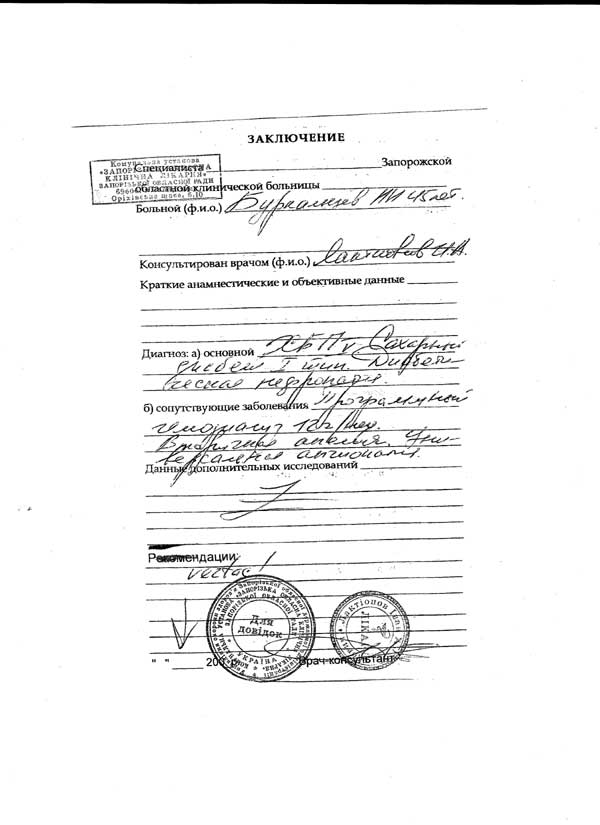 ЗАКЛЮЧЕНИЕ
Комунальна установа
«ЗАПОРІЗЬКА ОБЛАСНА
КЛІНІЧНА ЛІКАРНЯ»
ЗАПОРІЗЬКОЇ ОБЛАСНОЇ РАДИ
Оріхівське шосе, б.10
Специалиста Запорожской
областной клинической больницы
Больной (ф.и.о.) 45 лет.
Консультирован врачом (ф.и.о.)
Краткие анамнестические и объективные данные
Диагноз: а) основной ХБП V. Сахарный
диабет I тип. Диабети-
ческая нефропатия.
б) сопутствующие заболевания Програмный
гемодиализ 12 г/нед.
Вторичная анемия. Уни-
версальная ангиопатия.
Данные дополнительных исследований
Рекомендации:
Для
довідок
УКРАЇНА
Лактіонов
ЛІКАР
" " 200 р. Врач-консультант